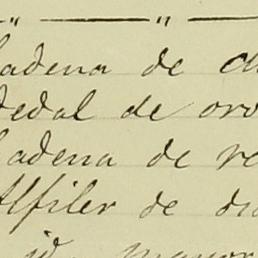 " — "
cadena de
dedal de oro
Cadena de re
Alfiler de di
id. mayor